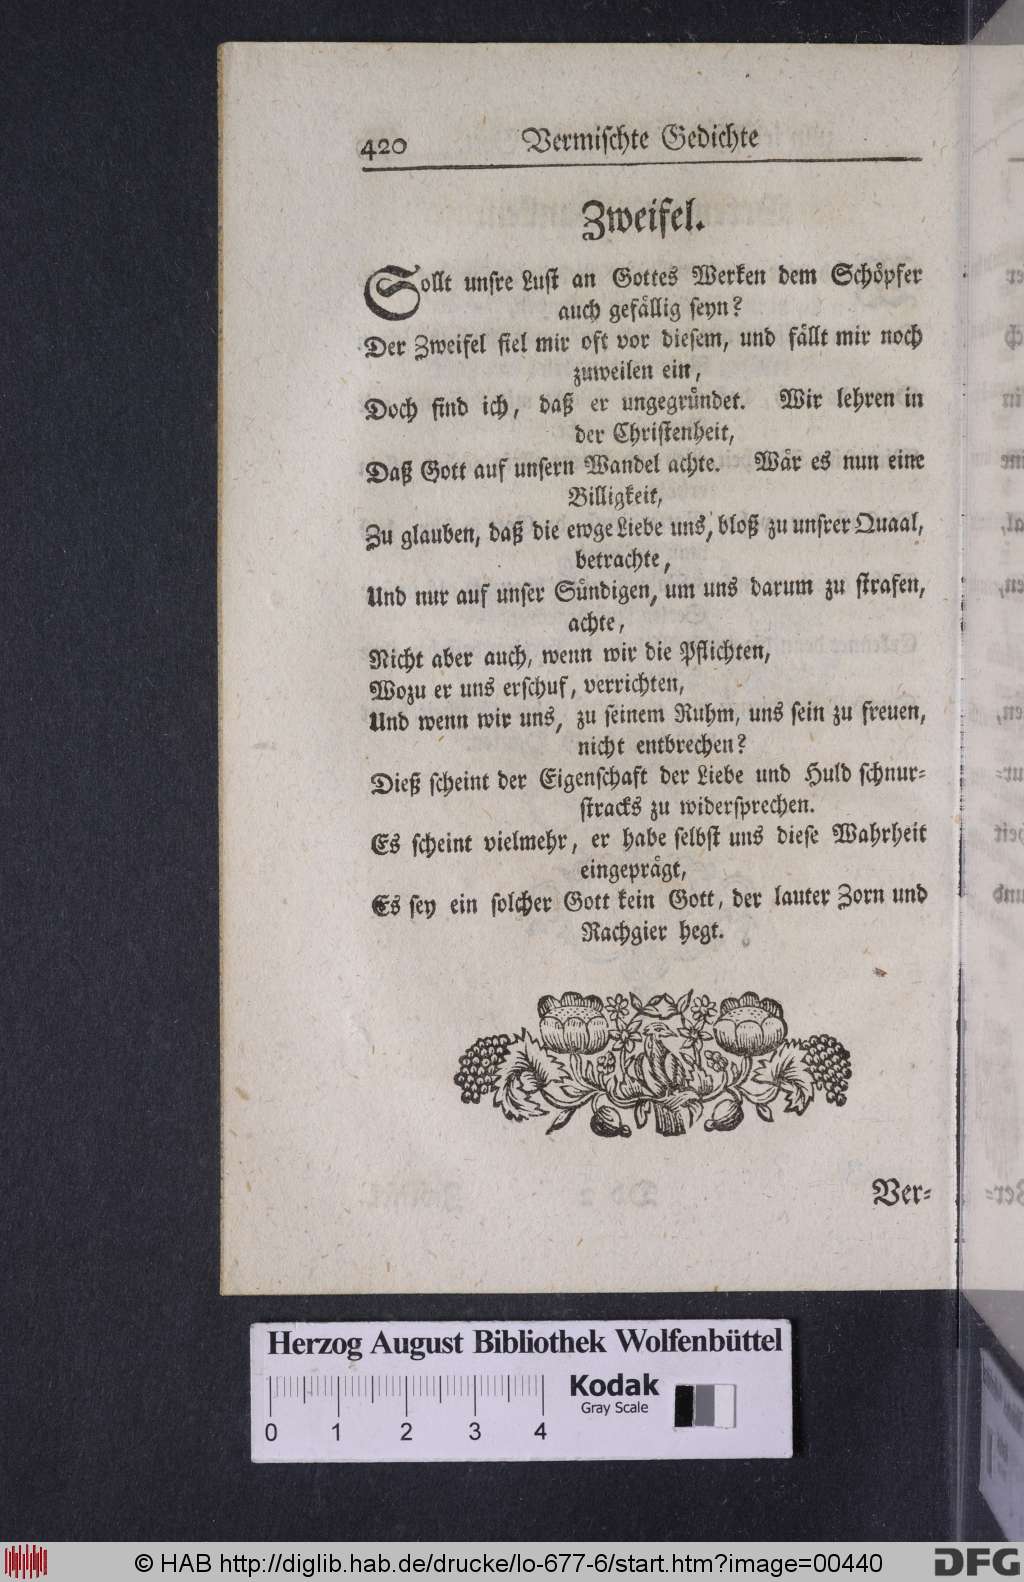 420 Vermischte Gedichte
Zweifel.
Sollt unsre Lust an Gottes Werken dem Schoͤpfer
auch gefaͤllig seyn?
Der Zweifel fiel mir oft vor diesem, und faͤllt mir noch
zuweilen ein,
Doch find ich, daß er ungegruͤndet. Wir lehren in
der Christenheit,
Daß Gott auf unsern Wandel achte. Waͤr es nun eine
Billigkeit,
Zu glauben, daß die ewge Liebe uns, bloß zu unsrer Quaal,
betrachte,
Und nur auf unser Suͤndigen, um uns darum zu strafen,
achte,
Nicht aber auch, wenn wir die Pflichten,
Wozu er uns erschuf, verrichten,
Und wenn wir uns, zu seinem Ruhm, uns sein zu freuen,
nicht entbrechen?
Dieß scheint der Eigenschaft der Liebe und Huld schnur-
stracks zu widersprechen.
Es scheint vielmehr, er habe selbst uns diese Wahrheit
eingepraͤgt,
Es sey ein solcher Gott kein Gott, der lauter Zorn und
Rachgier hegt.
Ver-
Herzog August Bibliothek Wolfenbüttel
Kodak
Gray Scale
0 1 2 3 4
© HAB http://diglib.hab.de/drucke/lo-677-6/start.htm?image=00440
DFG